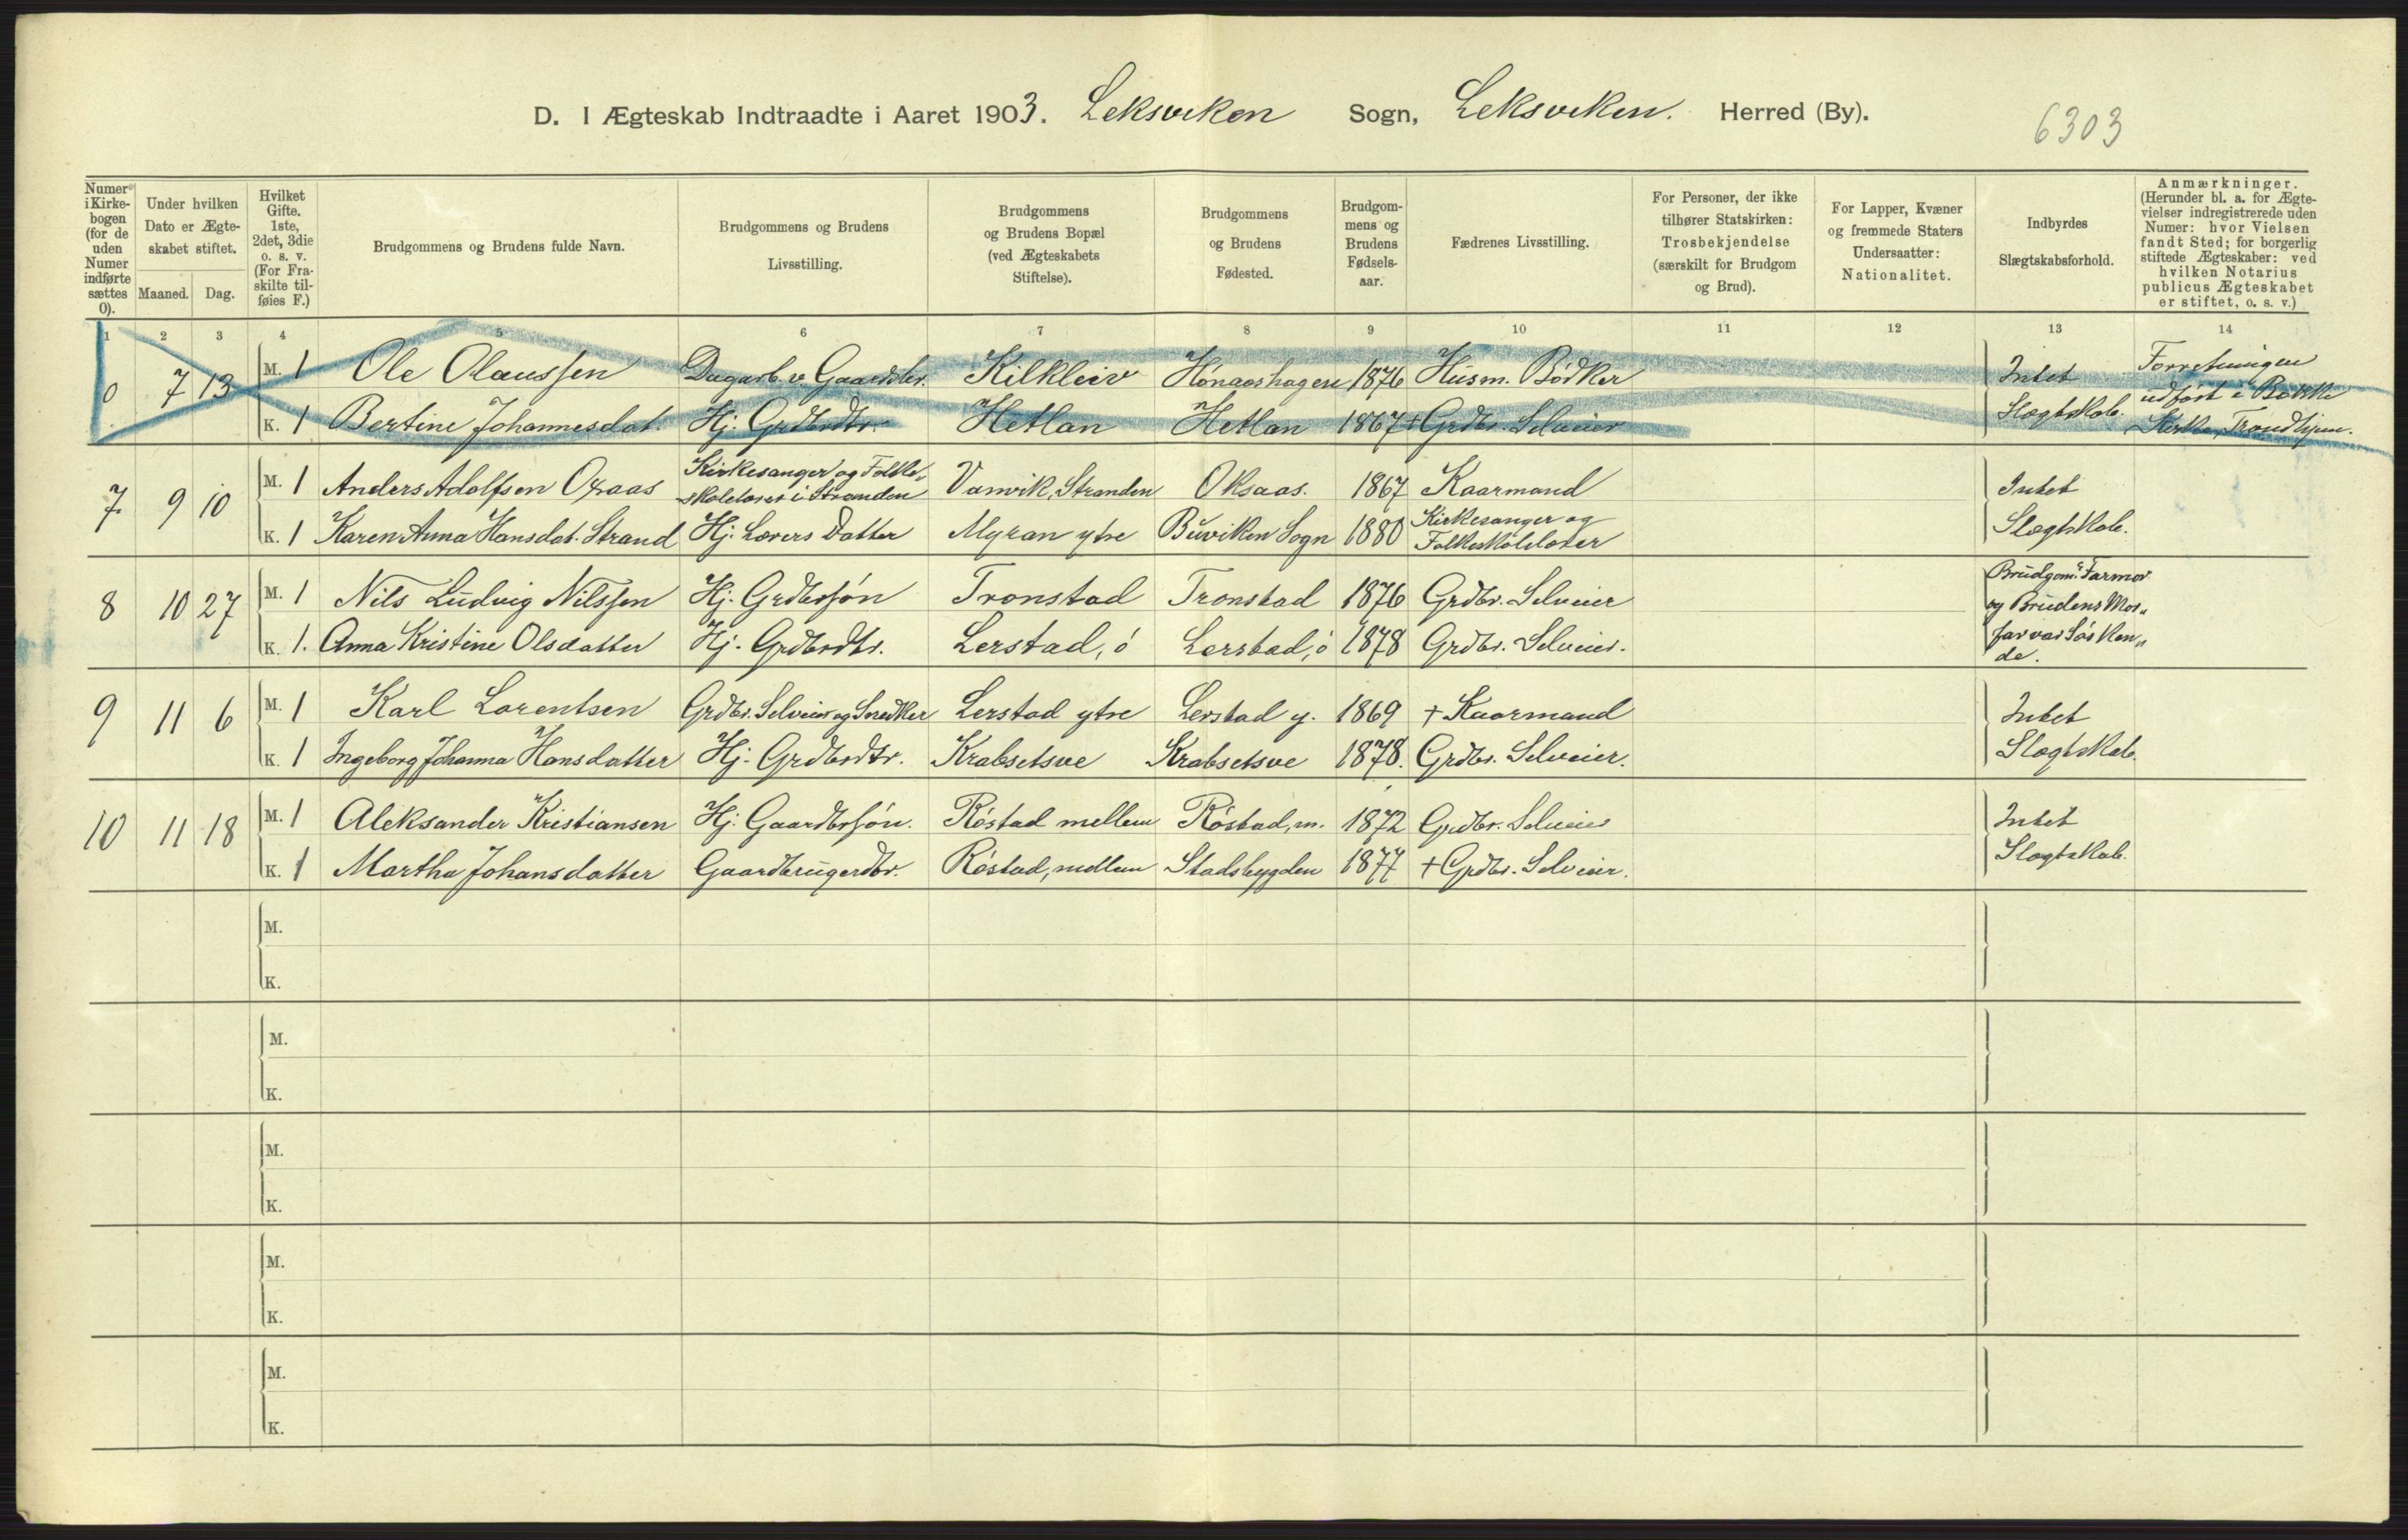 D. I Ægteskab Indtraadte i Aaret 1903. Leksviken Sogn, Leksviken. Herred (By).
6303
Numer i Kirkebogen (for de uden Numer indførte sættes 0).
Under hvilken Dato er Ægteskabet stiftet.
Maaned. Dag.
Hvilket Gifte. 1ste, 2det, 3die o. s. v. (For Fraskilte tilføies F.)
Brudgommens og Brudens fulde Navn.
Brudgommens og Brudens Livsstilling.
Brudgommens og Brudens Bopæl (ved Ægteskabets Stiftelse).
Brudgommens og Brudens Fødested.
Brudgommens og Brudens Fødselsaar.
Fædrenes Livsstilling.
For Personer, der ikke tilhører Statskirken: Trosbekjendelse (særskilt for Brudgom og Brud).
For Lapper, Kvæner og fremmede Staters Undersaatter: Nationalitet.
Indbyrdes Slægtskabsforhold.
Anmærkninger. (Herunder bl. a. for Ægtevielser indregistrerede uden Numer: hvor Vielsen fandt Sted; for borgerlig stiftede Ægteskaber: ved hvilken Notarius publicus Ægteskabet er stiftet, o. s. v.)
1 2 3 4 5 6 7 8 9 10 11 12 13 14
0 7 13 M. 1 Ole Olaussen Dagarb. v. Gaardbr. Kilkleiv Hónaashagen 1876 Husm. Bödker Intet Forretningen
K. 1 Bertine Johannesdat. Hj. Grdbrdtr. Hetlan Hetlan 1867 + Grdbr. Selveier Slægtskab. udfört i Bakke Kirke, Trondhjem.
7 9 10 M. 1 Anders Adolfsen Oxaas Kirkesanger og Folkeskolelærer i Stranden Vanvik, Stranden Oksaas. 1867 Kaarmand Intet
K. 1 Karen Anna Hansdat. Strand Hj. Lærers Datter Myran ytre Buviken Sogn 1880 Kirkesanger og Folkeskolelærer Slægtskab.
8 10 27 M. 1 Nils Ludvig Nilssen Hj. Grdbrsón Tronstad Tronstad 1876 Grdbr. Selveier Brudgom.s Farmor og Brudens Mor„
K. 1. Anna Kristine Olsdatter Hj. Grdbrdtr. Lerstad, ó Lerstad, ó 1878 Grdbr. Selveier. far var Søsken„ de.
9 11 6 M. 1 Karl Lorentsen Grdbr. Selveier og Snedker Lerstad ytre Lerstad y. 1869 + Kaarmand Intet
K. 1 Ingeborg Johanna Hansdatter Hj. Grdbrdtr. Krabsetsve Krabsetsve 1878. Grdbr. Selveier. Slægtskab.
10 11 18 M. 1 Aleksander Kristiansen Hj. Gaardbrsón. Róstad mellem Róstad, m. 1872 Grdbr. Selveier Intet
K. 1 Martha Johansdatter Gaardbrugerdtr. Róstad, mellem Stadsbygden 1877 + Grdbr. Selveier. Slægtskab.
M.
K.
M.
K.
M.
K.
M.
K.
M.
K.